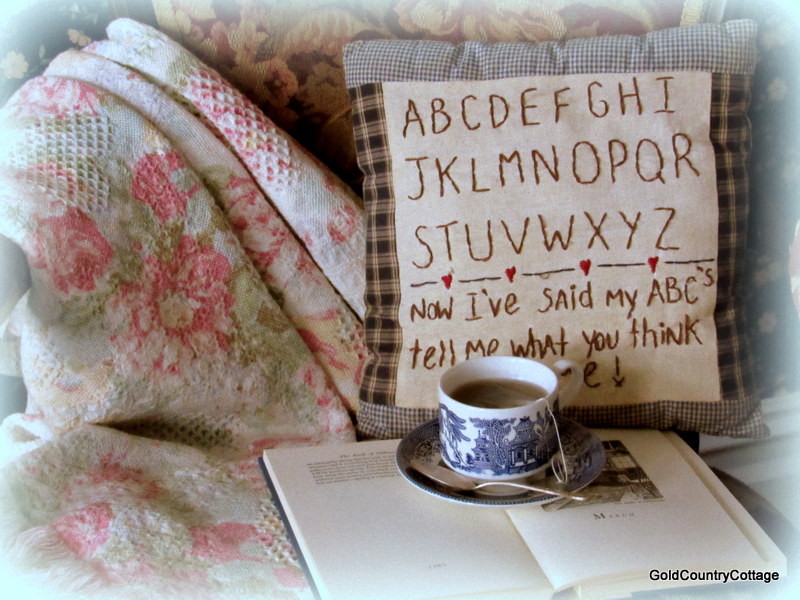 ABCDEFGHI
JKLMNOPQR
STUVWXYZ
NOW I've said my ABC's
tell me what you think
e!
MARCH
GoldCountryCottage